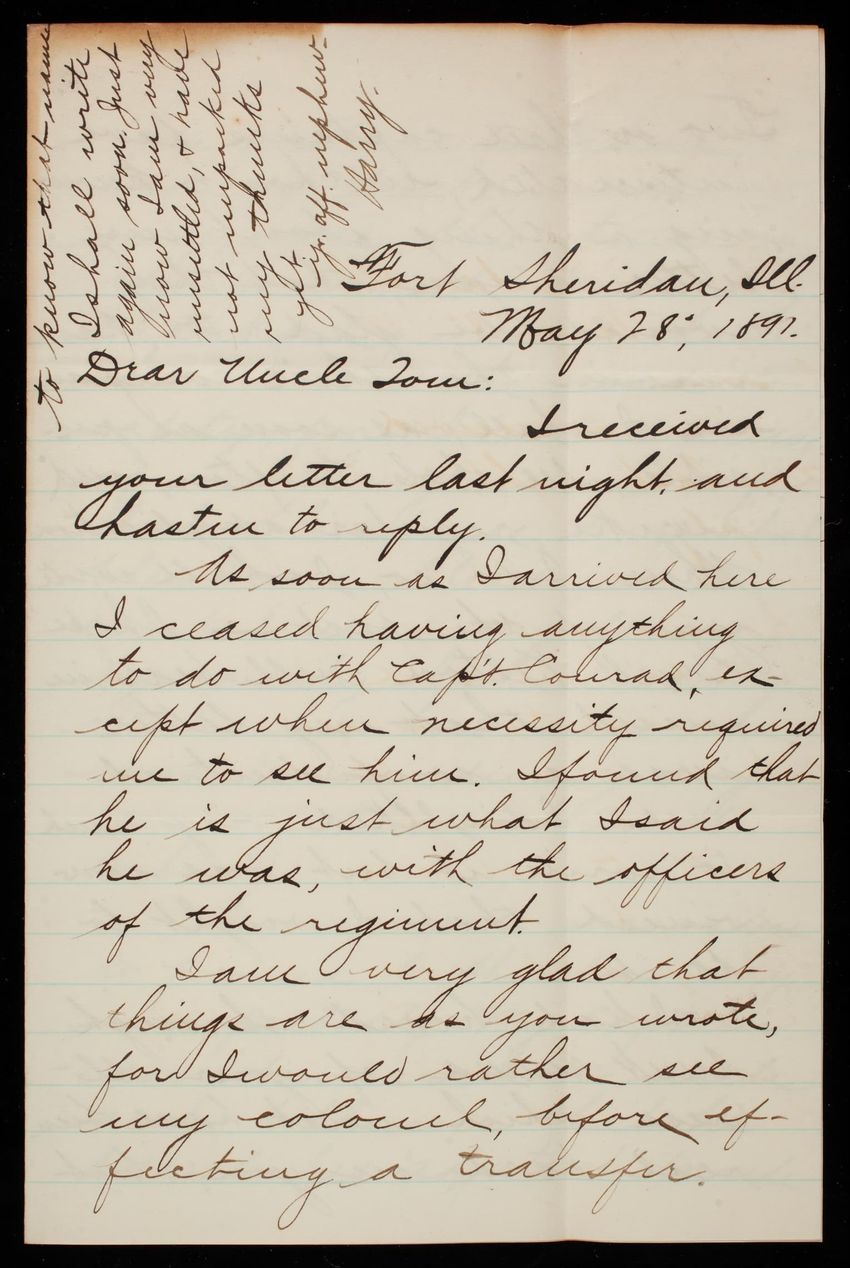 to know that name
I shall write
again soon. Just
now I am very
unsettled, & have
not unpacked
my thunks
yet.
yr. aff. nephew-
Harry.
Fort Sheridan, Ill.
May 28", 1891.
Dear Uncle Tom:
I received
your letter last night, and
hasten to reply.
As soon as I arrived here
I ceased having anything
to do with Capt. Conrad, ex-
cept when necessity required
me to see him. I found that
he is just what I said
he was, with the officers
of the regiment.
I am very glad that
things are as you wrote,
for I would rather see
my colonel, before ef-
fecting a transfer.